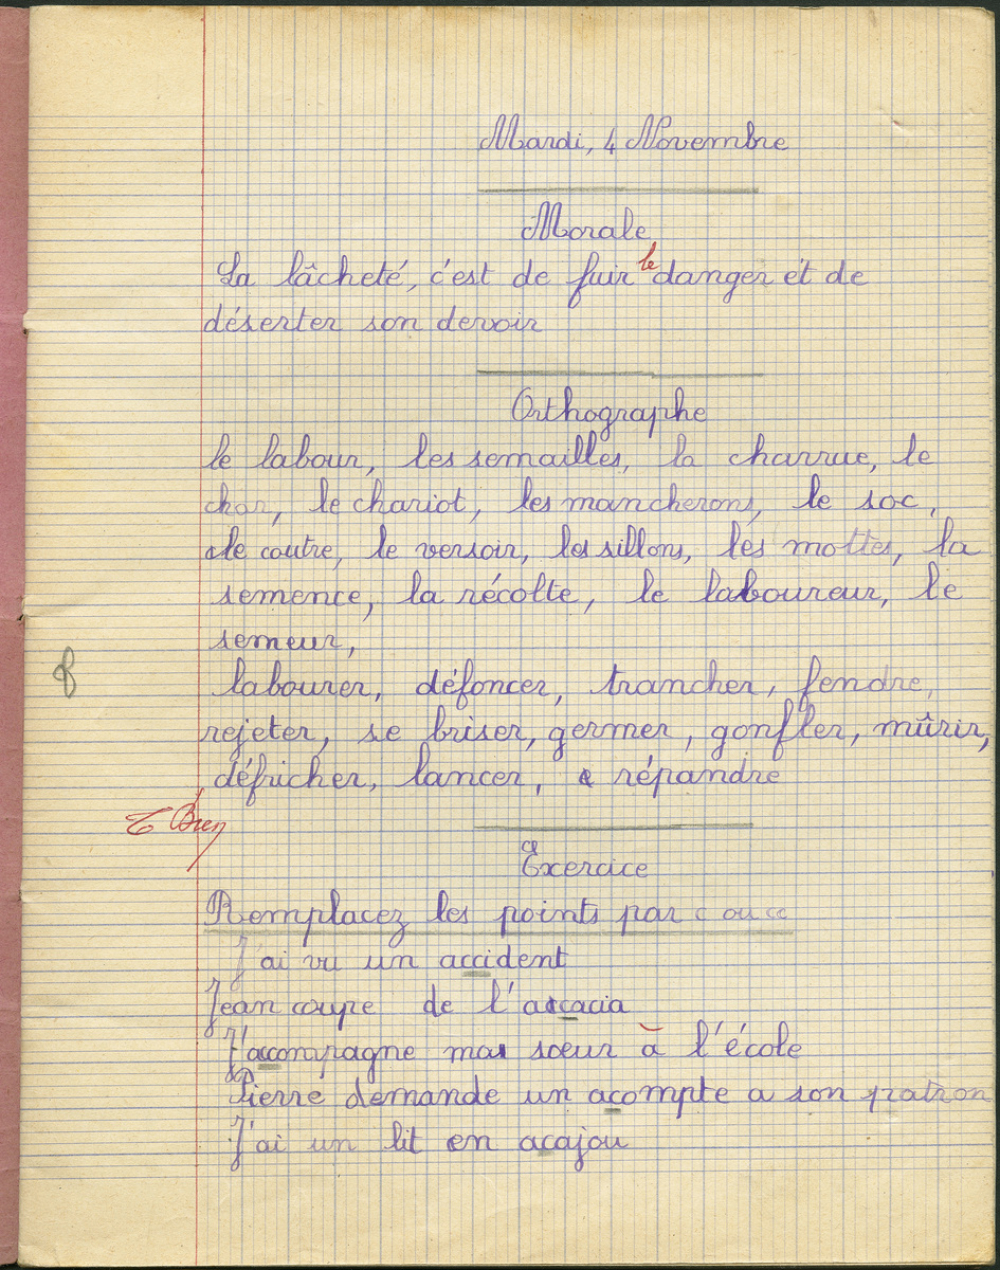 Mardi, 4 Novembre
Morale
La lâcheté, c'est de fuir le danger et de
déserter son devoir
Orthographe
le labour, les semailles, la charrue, le
char, le chariot, les mancherons, le soc,
le coutre, le versoir, les sillons, les mottes, la
semence, la récolte, le laboureur, le
semeur,
labourer, défoncer, trancher, fendre,
rejeter, se briser, germer, gonfler, mûrir,
défricher, lancer, répandre
T Bien
Exercice
Remplacez les points par c ou cc
J'ai vu un accident
Jean coupe de l'acacia
J'accompagne ma sœur à l'école
Pierre demande un acompte a son patron
J'ai un lit en acajou